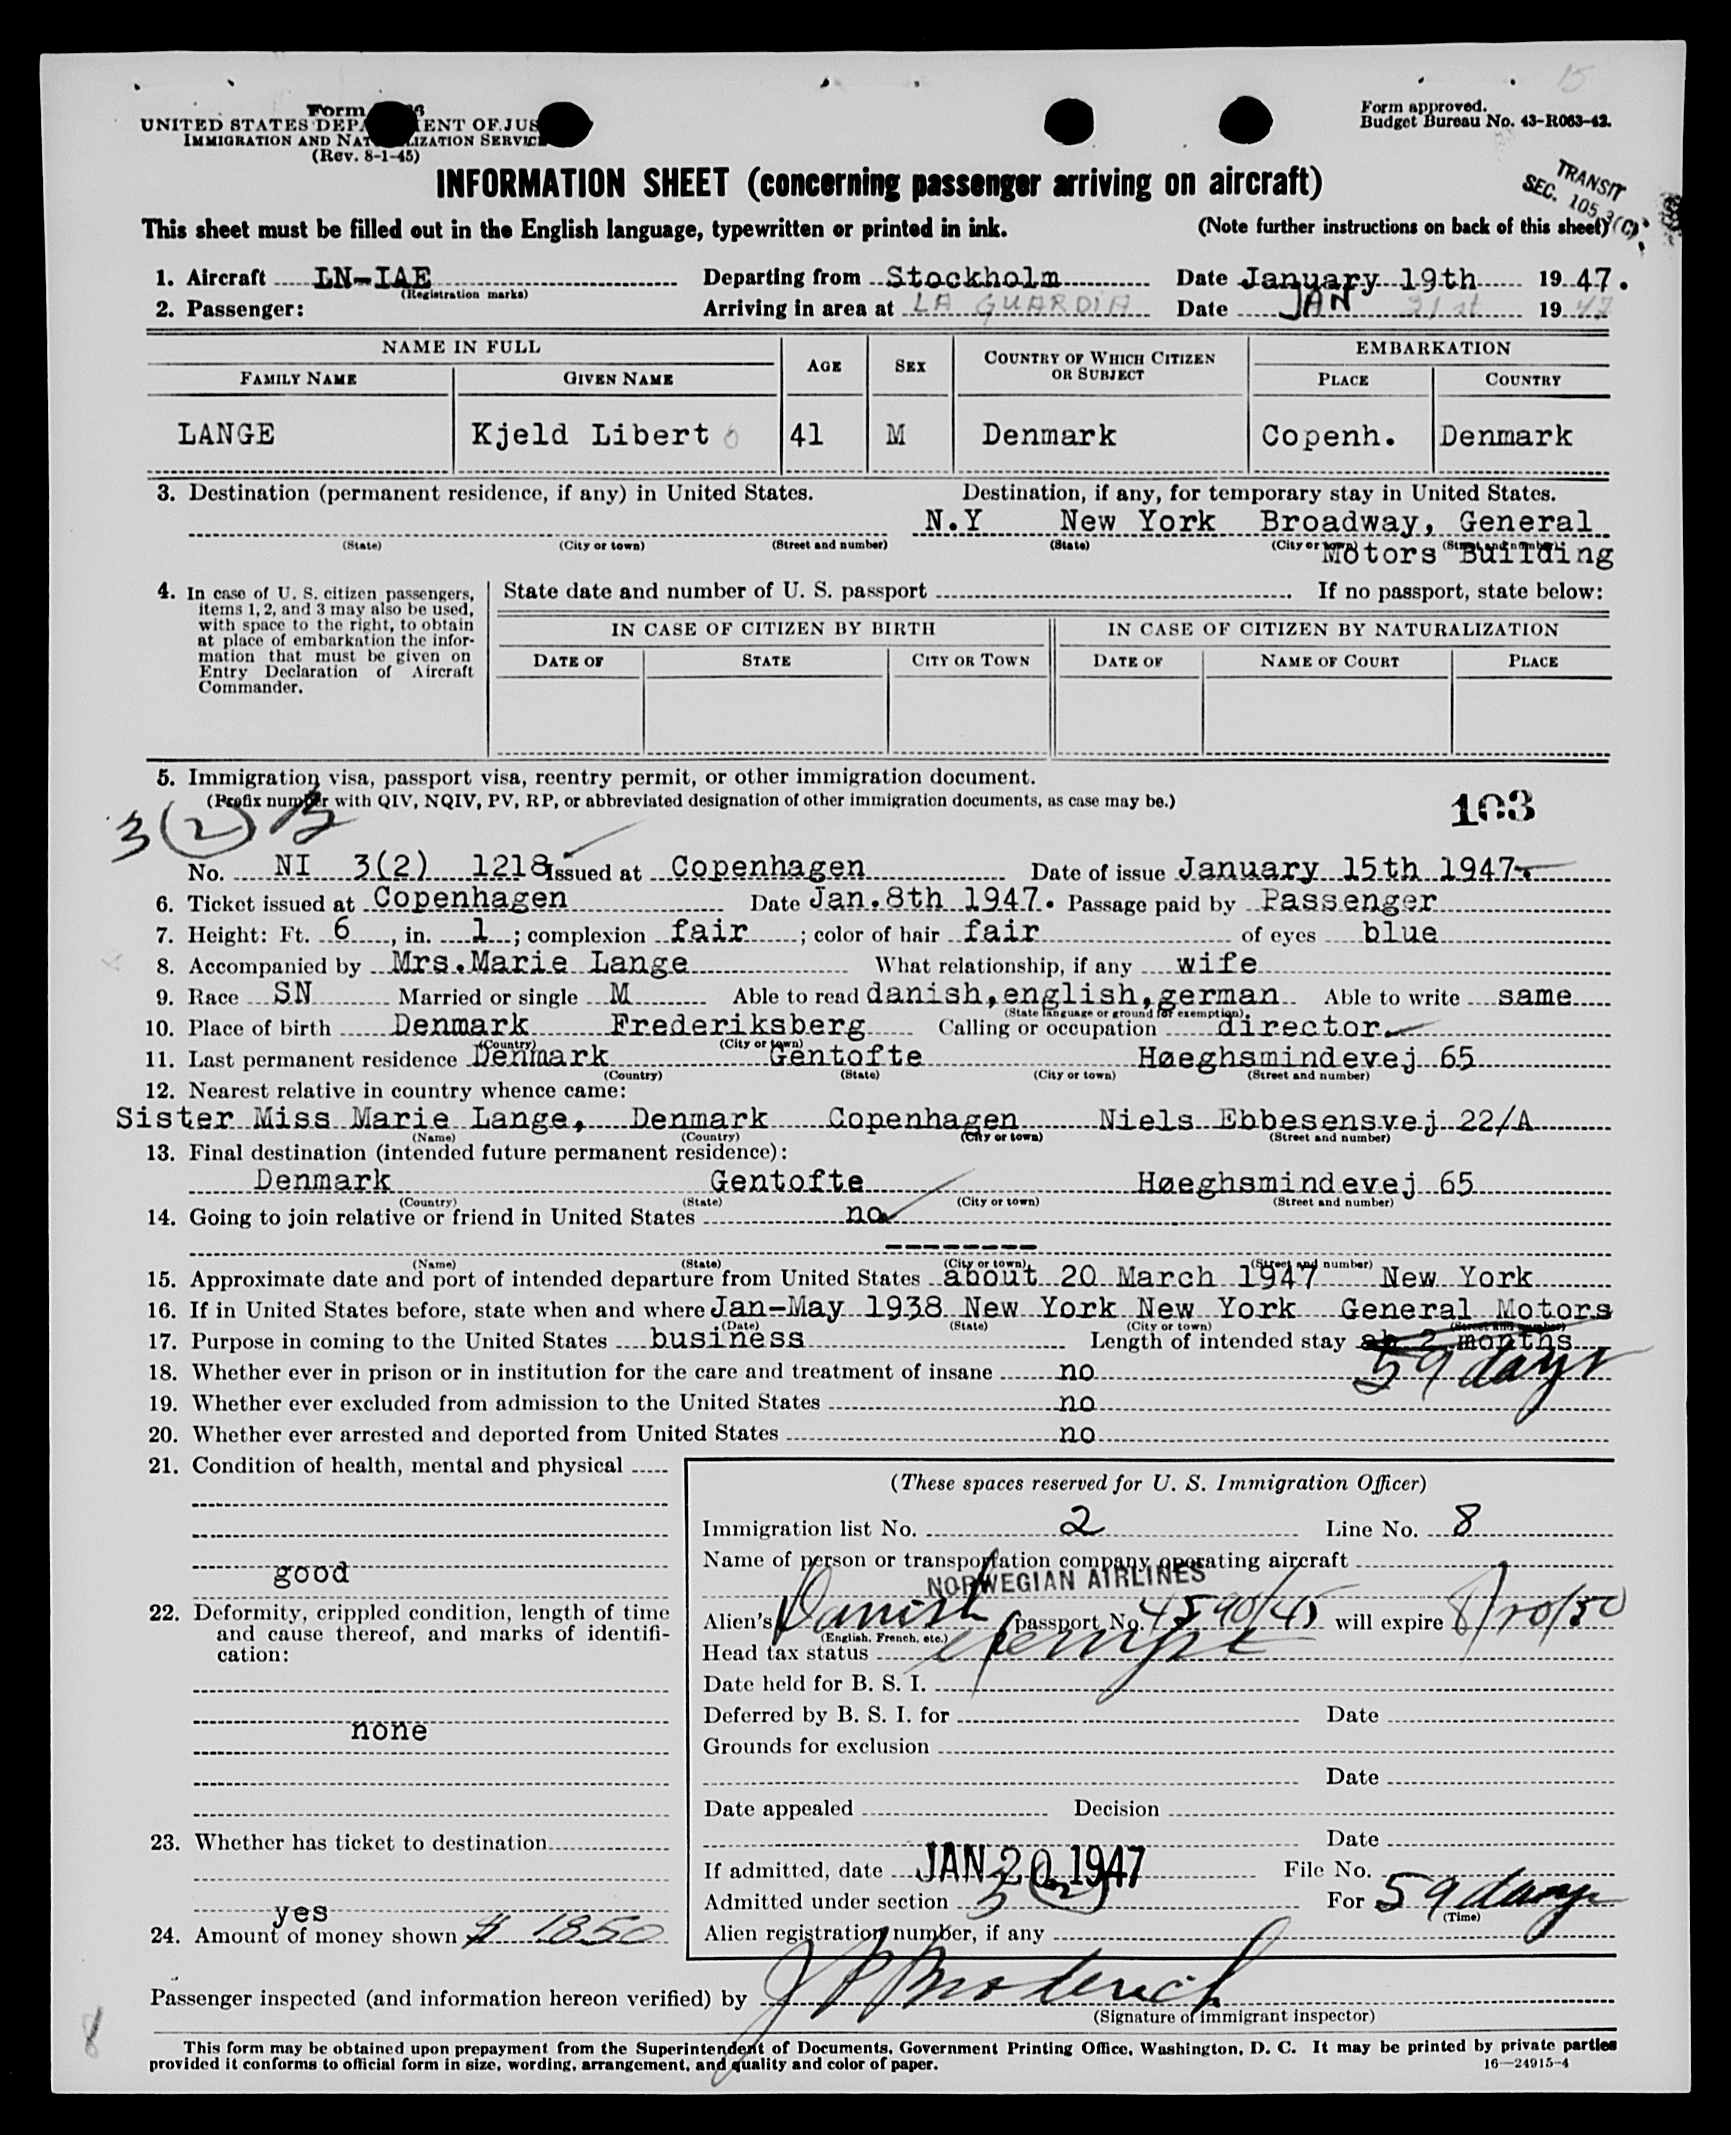 15
Form
UNITED STATES DEP ENT OF JUS
IMMIGRATION AND NAT LIZATION SERVICE
(Rev. 8-1-45)
Form approved.
Budget Bureau No. 43-R063-42.
INFORMATION SHEET (concerning passenger arriving on aircraft)
TRANSIT
SEC. 105.3(C)
This sheet must be filled out in the English language, typewritten or printed in ink.
(Note further instructions on back of this sheet)
1. Aircraft LN-IAE Departing from Stockholm Date January 19th 19 47.
(Registration marks)
2. Passenger: Arriving in area at LA GUARDIA Date JAN 19 47
NAME IN FULL AGE SEX COUNTRY OF WHICH CITIZEN OR SUBJECT EMBARKATION
FAMILY NAME GIVEN NAME PLACE COUNTRY
LANGE Kjeld Libert 41 M Denmark Copenh. Denmark
3. Destination (permanent residence, if any) in United States. Destination, if any, for temporary stay in United States.
N.Y New York Broadway, General
(State) (City or town) (Street and number) (State) (City or town) (Street and number)
Motors Building
4. In case of U. S. citizen passengers, items 1, 2, and 3 may also be used, with space to the right, to obtain at place of embarkation the information that must be given on Entry Declaration of Aircraft Commander.
State date and number of U. S. passport If no passport, state below:
IN CASE OF CITIZEN BY BIRTH IN CASE OF CITIZEN BY NATURALIZATION
DATE OF STATE CITY OR TOWN DATE OF NAME OF COURT PLACE
5. Immigration visa, passport visa, reentry permit, or other immigration document.
(Prefix number with QIV, NQIV, PV, RP, or abbreviated designation of other immigration documents, as case may be.)
103
3(2)
No. NI 3(2) 1218 Issued at Copenhagen Date of issue January 15th 1947.
6. Ticket issued at Copenhagen Date Jan.8th 1947. Passage paid by Passenger
7. Height: Ft. 6, in. 1; complexion fair; color of hair fair of eyes blue
8. Accompanied by Mrs.Marie Lange What relationship, if any wife
9. Race SN Married or single M Able to read danish,english,german Able to write same
(State language or ground for exemption)
10. Place of birth Denmark Frederiksberg Calling or occupation director
(Country) (City or town)
11. Last permanent residence Denmark Gentofte Høeghsmindevej 65
(Country) (State) (City or town) (Street and number)
12. Nearest relative in country whence came:
Sister Miss Marie Lange, Denmark Copenhagen Niels Ebbesensvej 22/A
(Name) (Country) (City or town) (Street and number)
13. Final destination (intended future permanent residence):
Denmark Gentofte Høeghsmindevej 65
(Country) (State) (City or town) (Street and number)
14. Going to join relative or friend in United States no
--------
(Name) (State) (City or town) (Street and number)
15. Approximate date and port of intended departure from United States about 20 March 1947 New York
16. If in United States before, state when and where Jan-May 1938 New York New York General Motors
(Date) (State) (City or town) (Street and number)
17. Purpose in coming to the United States business Length of intended stay ab 2 months
59 days
18. Whether ever in prison or in institution for the care and treatment of insane no
19. Whether ever excluded from admission to the United States no
20. Whether ever arrested and deported from United States no
21. Condition of health, mental and physical
good
22. Deformity, crippled condition, length of time and cause thereof, and marks of identification:
none
23. Whether has ticket to destination
yes
24. Amount of money shown $ 1850
(These spaces reserved for U. S. Immigration Officer)
Immigration list No. 2 Line No. 8
Name of person or transportation company operating aircraft
NORWEGIAN AIRLINES
Alien's Danish passport No. 4590/45 will expire 8/20/50
(English, French, etc.)
Head tax status exempt
Date held for B. S. I.
Deferred by B. S. I. for Date
Grounds for exclusion
Date
Date appealed Decision
Date
If admitted, date JAN 20 1947 File No.
Admitted under section 3(2) For 59 days
(Time)
Alien registration number, if any
Passenger inspected (and information hereon verified) by
(Signature of immigrant inspector)
8
This form may be obtained upon prepayment from the Superintendent of Documents, Government Printing Office, Washington, D. C. It may be printed by private parties
provided it conforms to official form in size, wording, arrangement, and quality and color of paper.
16—24915-4